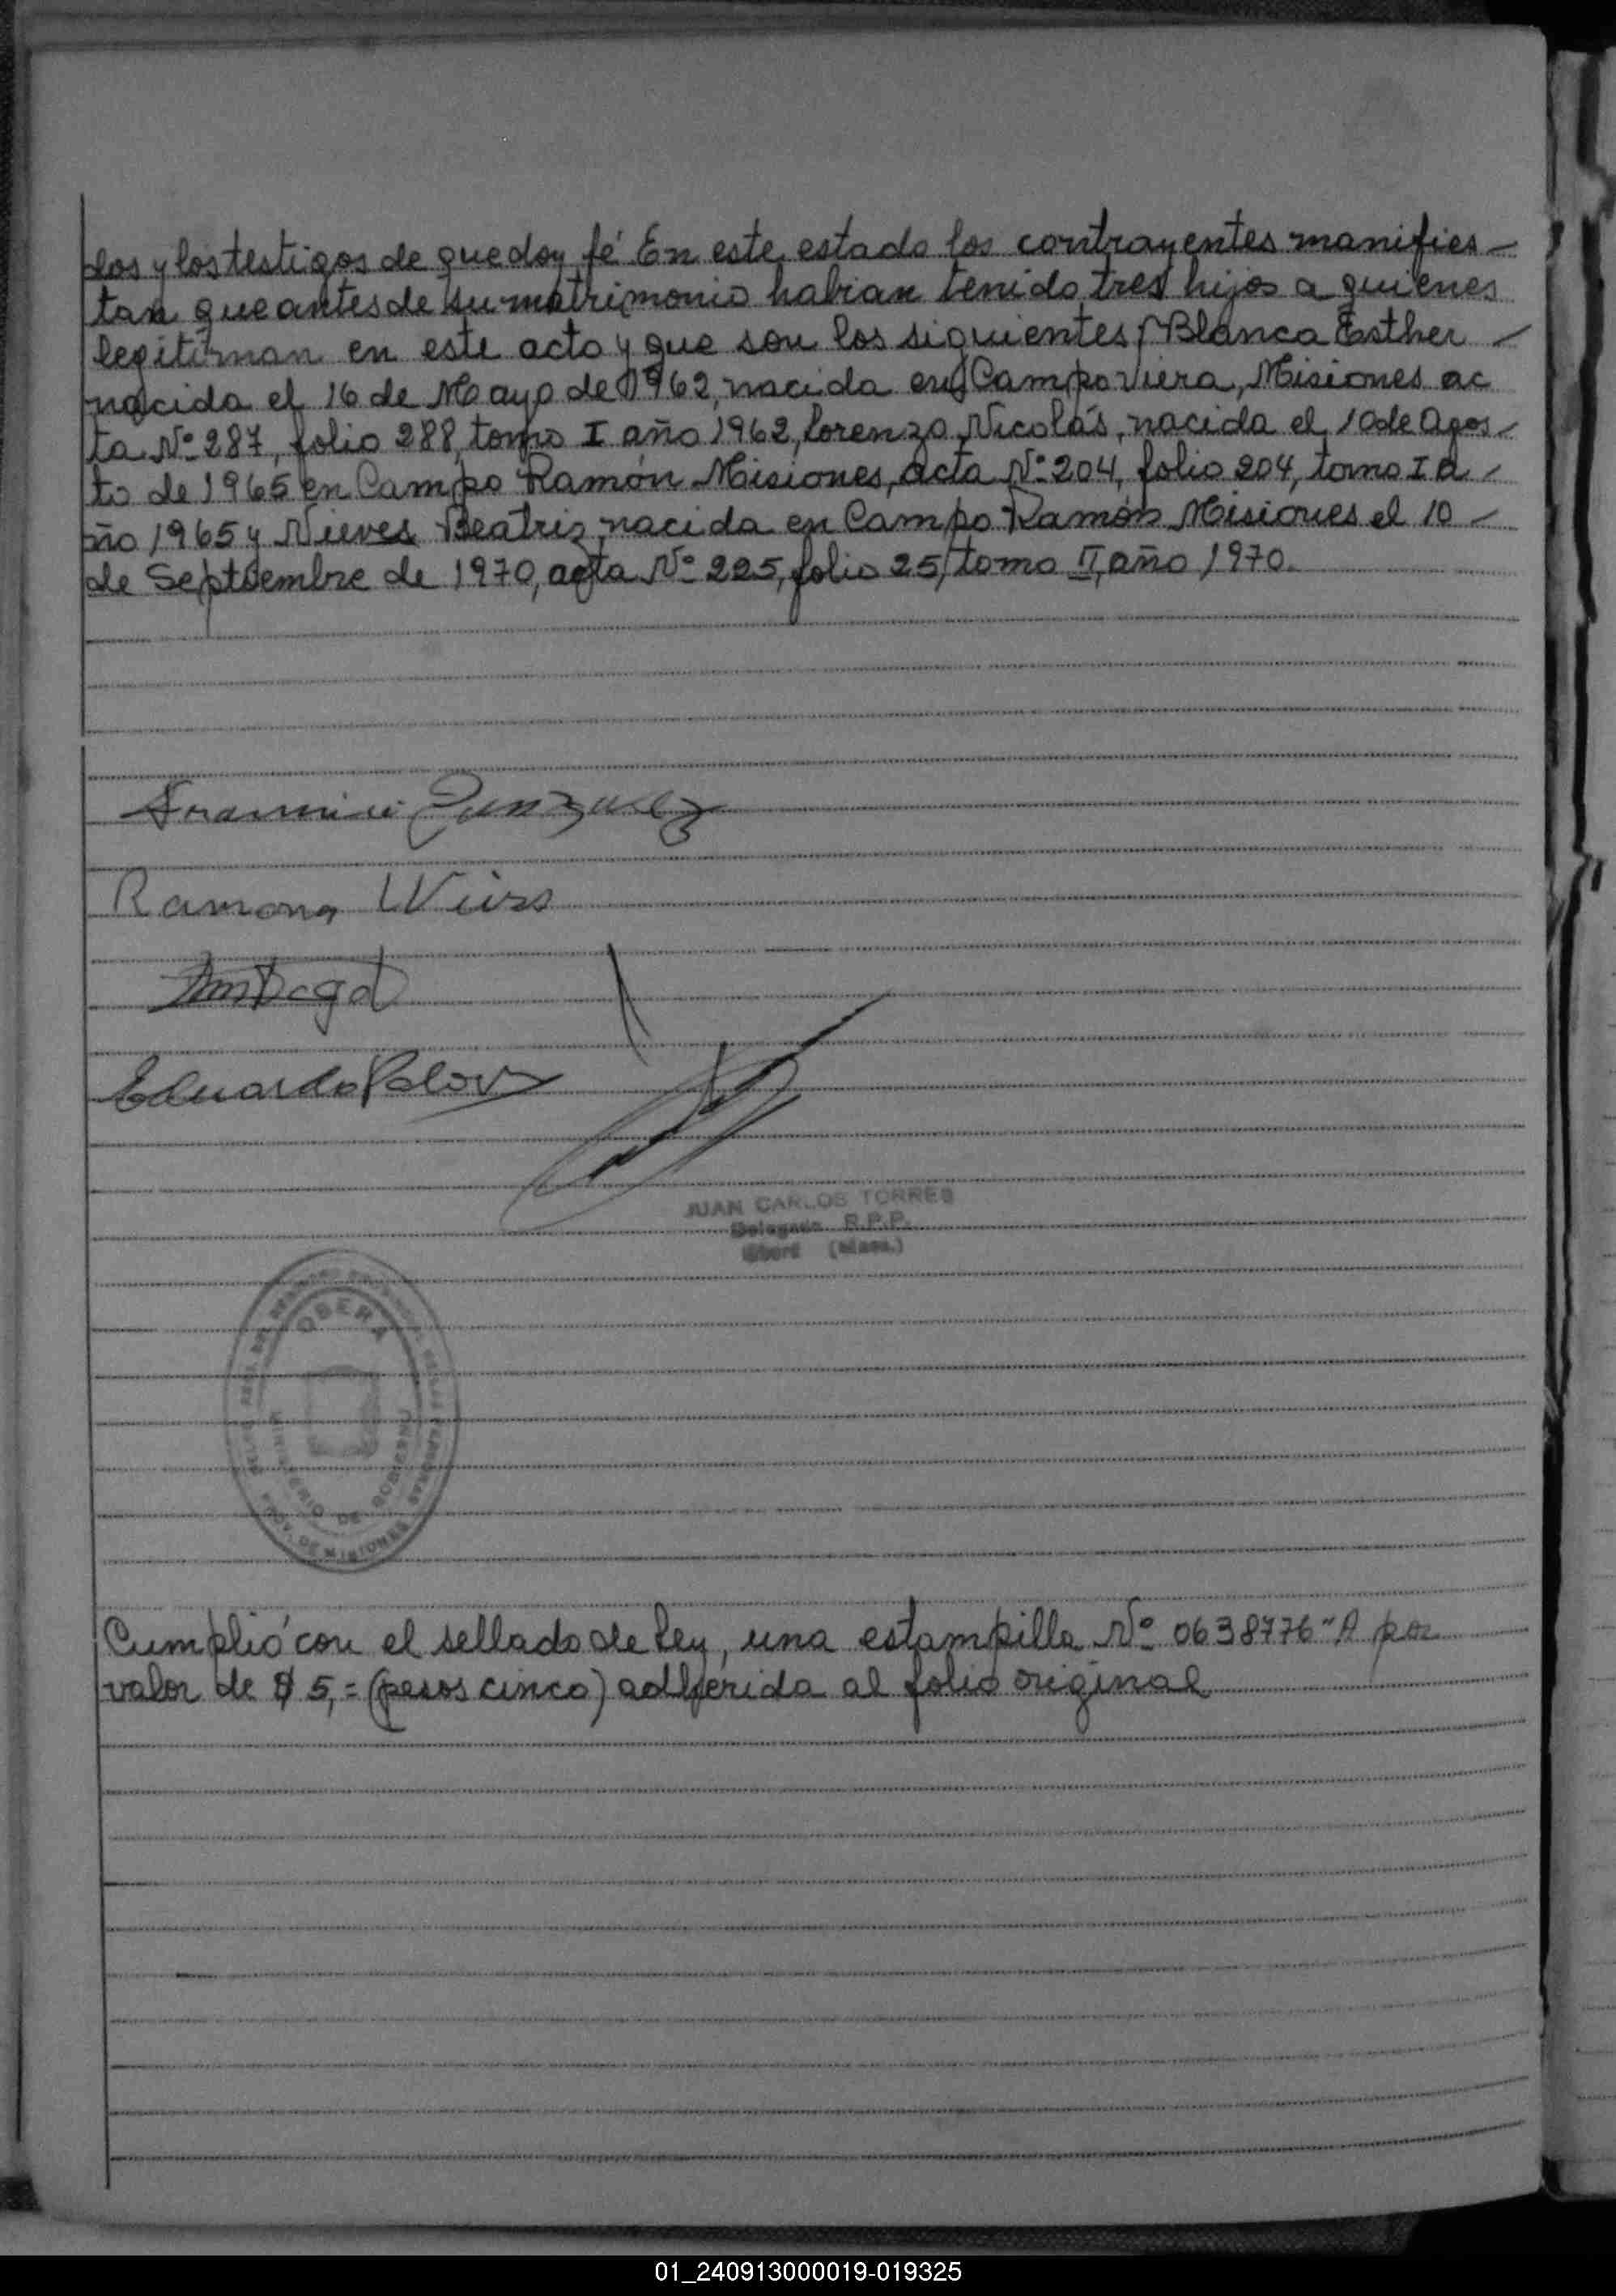 dos y los testigos de que doy fé. En este estado los contrayentes manifies-
tan que antes de su matrimonio habian tenido tres hijos a quienes
legitiman en este acto y que son los siguientes: Blanca Esther -
nacida el 16 de Mayo de 1962, nacida en Campo Viera, Misiones ac
ta Nº 287, folio 288, tomo I año 1962, Lorenzo Nicolás, nacida el 10 de Agos-
to de 1965 en Campo Ramón Misiones, acta Nº 204, folio 204, tomo I a-
ño 1965 y Nieves Beatriz, nacida en Campo Ramón Misiones el 10 -
de Septiembre de 1970, acta Nº 225, folio 25, tomo II, año 1970.
Ramona
Eduardo
JUAN CARLOS TORRES
Delegado R.P.P.
Oberá (Mnes.)
OBERA
MINISTERIO DE GOBIERNO
PROV. DE MISIONES
Cumplió con el sellado de Ley, una estampilla Nº 0638776-A por
valor de $ 5,= (pesos cinco) adherida al folio original
01_240913000019-019325